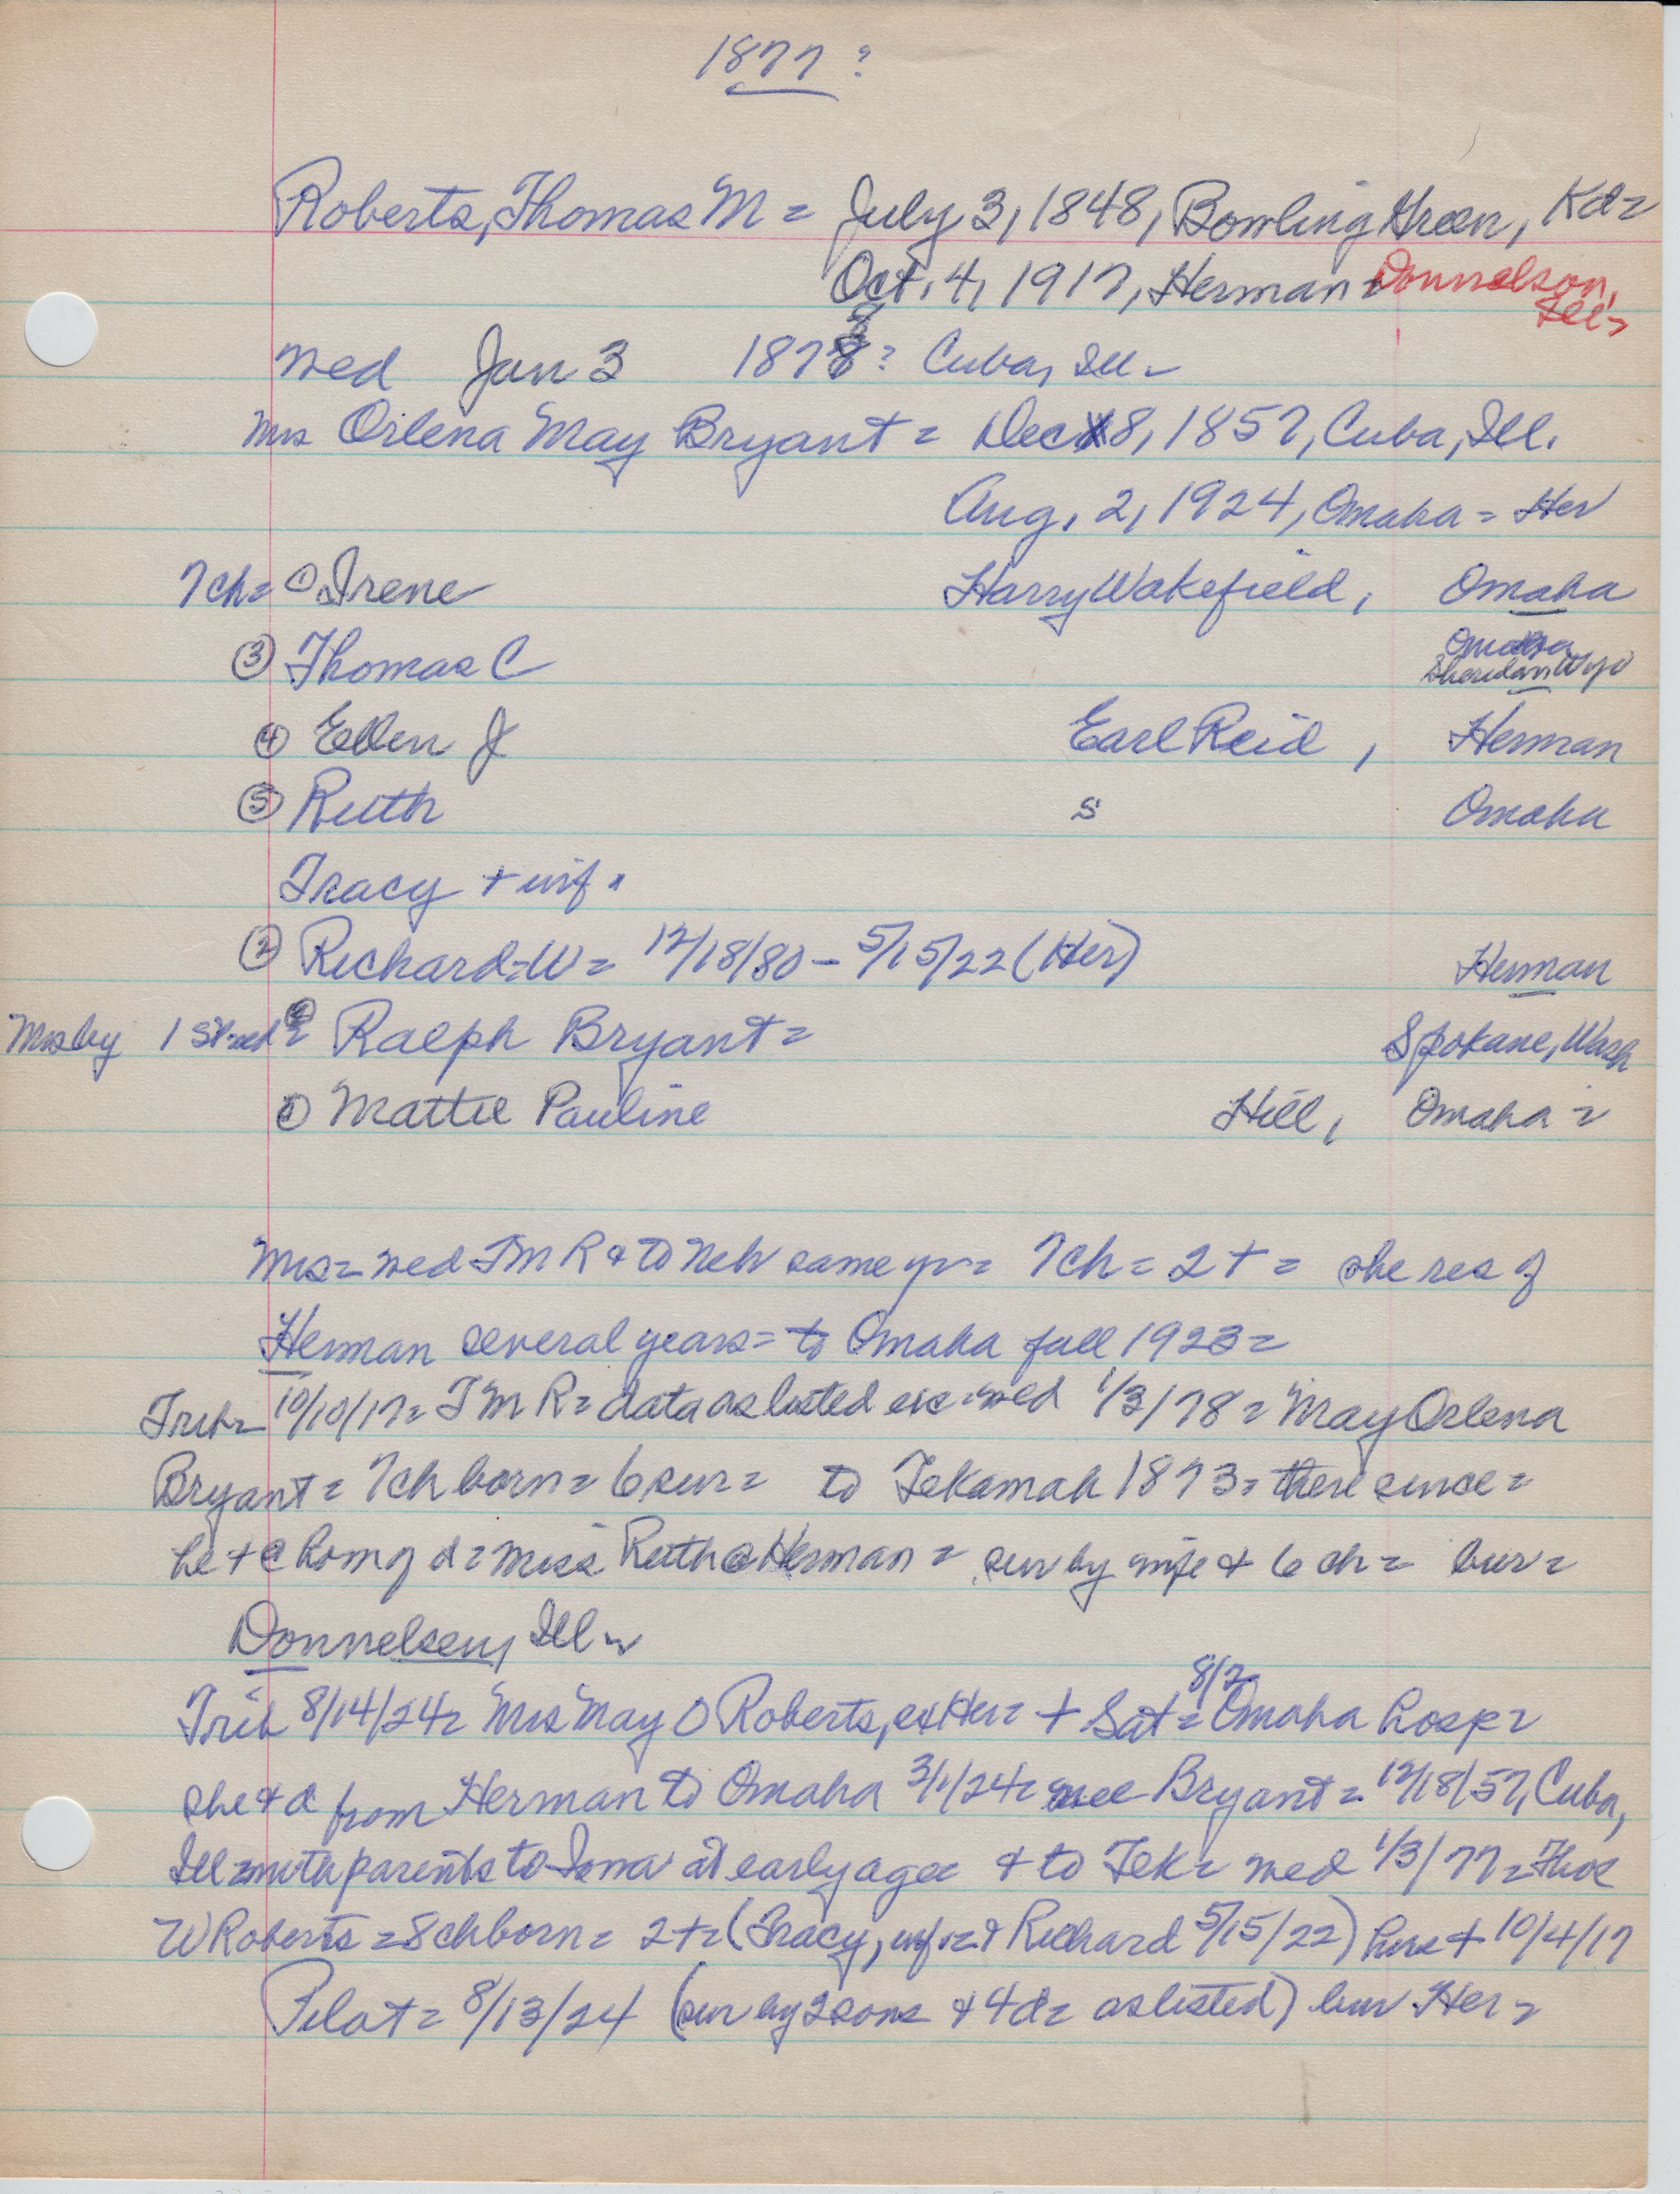 1877?
Roberts, Thomas M = July 3, 1848, Bowling Green, Kd=
Oct. 4, 1917, Herman = Donnelson,
Ill=
wed Jan 3 1878? Cuba, Ill-
8
Mrs Orlena May Bryant = Dec 18, 1857, Cuba, Ill.
Aug. 2, 1924, Omaha = Her
7ch= ① Irene Harry Wakefield, Omaha
③ Thomas C Omaha
Sheridan Wyo
④ Ellen J Earl Reid, Herman
⑤ Ruth S Omaha
Tracy + inf.
② Richard-W = 12/18/80 - 5/15/22 (Her) Herman
Mrs by 1st wed = ② Ralph Bryant = Spokane, Wash
① Mattie Pauline Hill, Omaha =
Mrs = wed T M R & to Neb same yr = 7ch = 2+ = she res of
Herman several years = to Omaha fall 1923 =
Trib= 10/10/17= T M R = data as listed exc wed 1/3/78 = May Orlena
Bryant = 7ch born = 6 sur = to Tekamah 1873 = there since =
he + @ hom of d = Miss Ruth @ Herman = sur by wife & 6 ch = bur =
Donnelsen, Ill=
Trib 8/14/24= Mrs May O Roberts, ex Her = + Sat = 8/2 Omaha hosp =
she & d from Herman to Omaha 3/1/24= nee Bryant = 12/18/57, Cuba,
Ill = with parents to Iowa at early age & to Tek = wed 1/3/77 = Thos
W Roberts = 8ch born = 2+= (Tracy, inf. = & Richard 5/15/22) hus + 10/4/17
Pilot = 8/13/24 (sur by 2 sons & 4 d = as listed) bur Her =